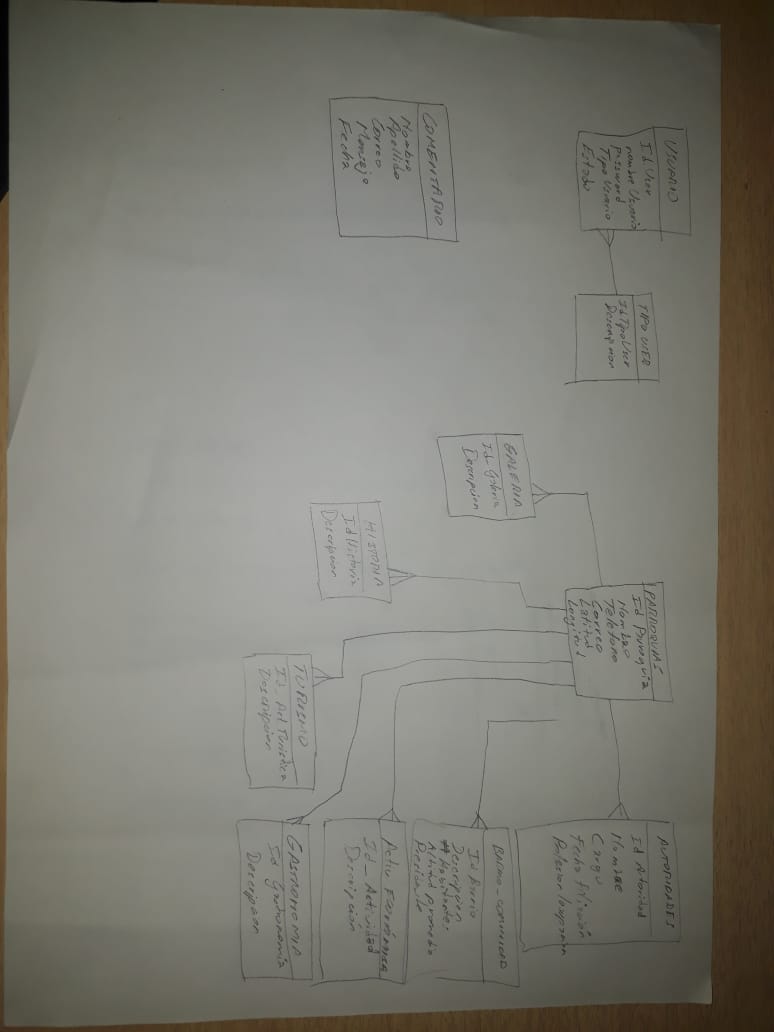 USUARIO
Id_User
nombre Usuario
password
Tipo Usuario
Estado
TIPO USER
IdTipoUser
Descripcion
PARROQUIAS
Id Parroquia
Nombre
Telefono
Correo
Latitud
Longitud
AUTORIDADES
Id Autoridad
Nombre
Cargo
Fecha
Profesion
GALERIA
Id_Galeria
Descripcion
BARRIO_COMUNIDAD
Id Barrio
Descripcion
# Habitantes
Altitud promedio
Presidente
COMENTARIO
Nombre
Apellido
Correo
Mensaje
Fecha
HISTORIA
Id Historia
Descripcion
Activ. Económica
Id_Actividad
Descripción
TURISMO
Id_Act Turistica
Descripcion
GASTRONOMIA
Id Gastronomia
Descripcion